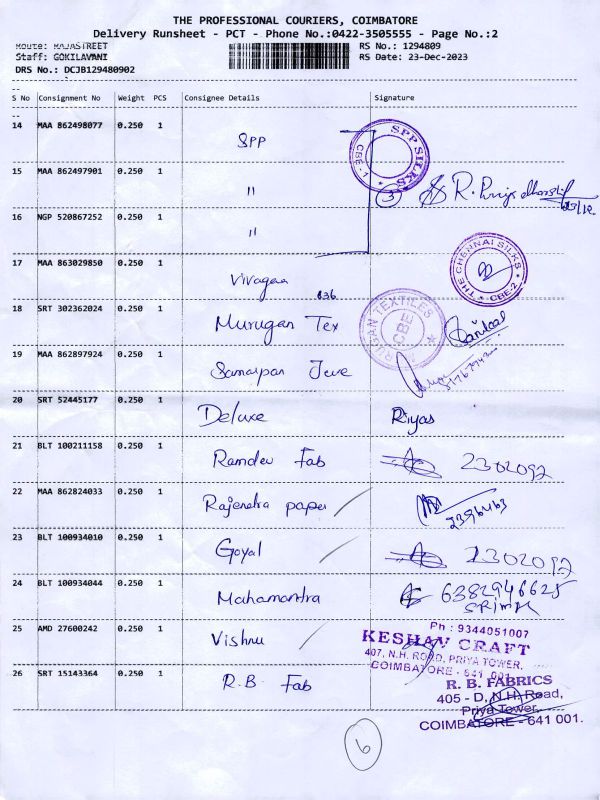 THE PROFESSIONAL COURIERS, COIMBATORE
Delivery Runsheet - PCT - Phone No.:0422-3505555 - Page No.:2
Route: RAJASTREET
Staff: GOKILAVANI
DRS No.: DCJB129480902
RS No.: 1294809
RS Date: 23-Dec-2023
S No Consignment No Weight PCS Consignee Details Signature
14 MAA 862498077 0.250 1 SPP
SPP SILKS CBE-1
15 MAA 862497901 0.250 1 "
3 R.
16 NGP 520867252 0.250 1 "
17 MAA 863029850 0.250 1 Vivagaa 836
THE CHENNAI SILKS CBE-2
18 SRT 302362024 0.250 1 Murugan Tex
MURUGAN TEXTILES CBE
19 MAA 862897924 0.250 1
20 SRT 52445177 0.250 1 Deluxe Riyas
21 BLT 100211158 0.250 1 Ramdev Fab 2302092
22 MAA 862824033 0.250 1 Rajendra paper 2396463
23 BLT 100934010 0.250 1 Goyal 2302092
24 BLT 100934044 0.250 1 Mahamantra 6382946625
25 AMD 27600242 0.250 1 Vishnu
Ph : 9344051007
KESHAV CRAFT
407, N.H. ROAD, PRIYA TOWER,
COIMBATORE - 641 001.
26 SRT 15143364 0.250 1 R.B. Fab
R. B. FABRICS
405 - D, N.H. Road,
Priya Tower,
COIMBATORE - 641 001.
6